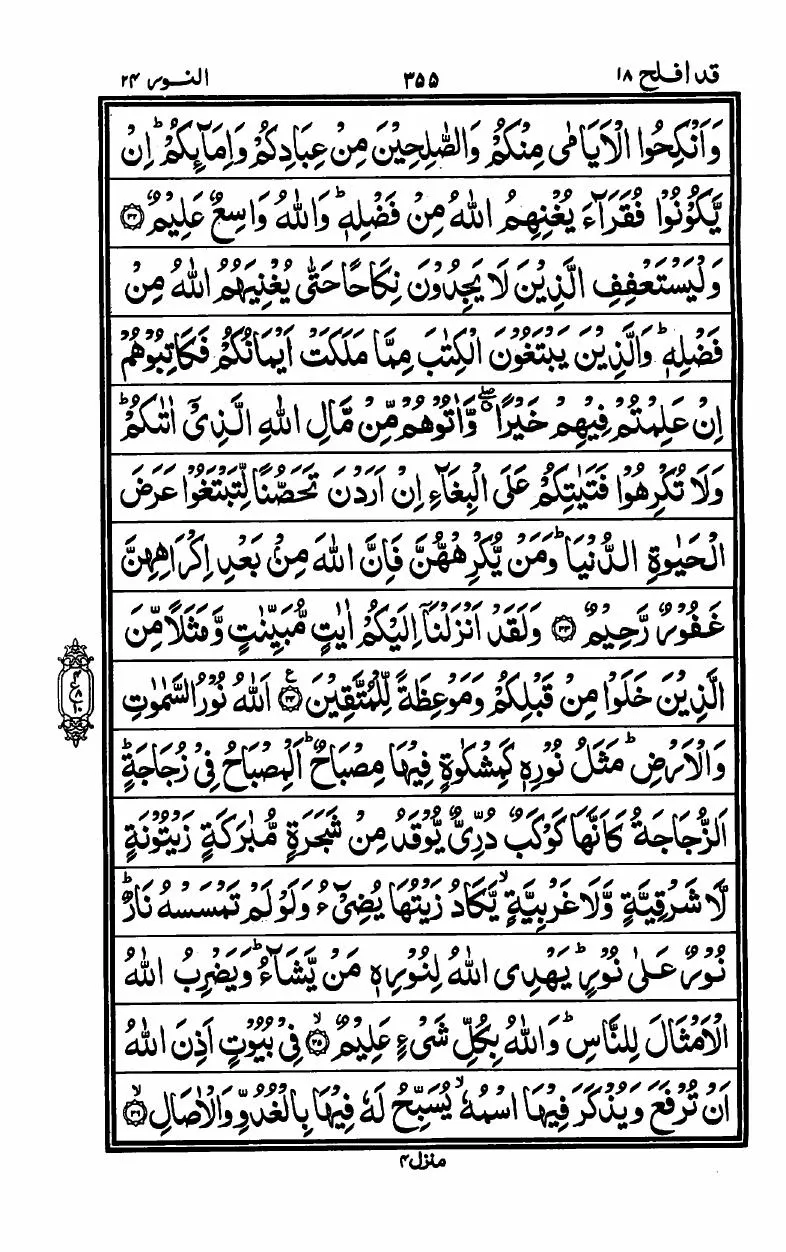 قد افلح ١٨
٣٥٥
النور ٢٤
وَاَنْكِحُوا الْاَيَامٰى مِنْكُمْ وَالصّٰلِحِيْنَ مِنْ عِبَادِكُمْ وَاِمَآئِكُمْ ؕ اِنْ
يَّكُوْنُوْا فُقَرَآءَ يُغْنِهِمُ اللّٰهُ مِنْ فَضْلِهٖ ؕ وَاللّٰهُ وَاسِعٌ عَلِيْمٌ ﴿۳۲﴾
وَلْيَسْتَعْفِفِ الَّذِيْنَ لَا يَجِدُوْنَ نِكَاحًا حَتّٰى يُغْنِيَهُمُ اللّٰهُ مِنْ
فَضْلِهٖ ؕ وَالَّذِيْنَ يَبْتَغُوْنَ الْكِتٰبَ مِمَّا مَلَكَتْ اَيْمَانُكُمْ فَكَاتِبُوْهُمْ
اِنْ عَلِمْتُمْ فِيْهِمْ خَيْرًا ۖ وَّاٰتُوْهُمْ مِّنْ مَّالِ اللّٰهِ الَّذِيْۤ اٰتٰىكُمْ ؕ
وَلَا تُكْرِهُوْا فَتَيٰتِكُمْ عَلَى الْبِغَآءِ اِنْ اَرَدْنَ تَحَصُّنًا لِّتَبْتَغُوْا عَرَضَ
الْحَيٰوةِ الدُّنْيَا ؕ وَمَنْ يُّكْرِهْهُّنَّ فَاِنَّ اللّٰهَ مِنْۢ بَعْدِ اِكْرَاهِهِنَّ
غَفُوْرٌ رَّحِيْمٌ ﴿۳۳﴾ وَلَقَدْ اَنْزَلْنَاۤ اِلَيْكُمْ اٰيٰتٍ مُّبَيِّنٰتٍ وَّمَثَلًا مِّنَ
الَّذِيْنَ خَلَوْا مِنْ قَبْلِكُمْ وَمَوْعِظَةً لِّلْمُتَّقِيْنَ ﴿۳۴﴾ ع اَللّٰهُ نُوْرُ السَّمٰوٰتِ
وَالْاَرْضِ ؕ مَثَلُ نُوْرِهٖ كَمِشْكٰوةٍ فِيْهَا مِصْبَاحٌ ؕ اَلْمِصْبَاحُ فِيْ زُجَاجَةٍ ؕ
اَلزُّجَاجَةُ كَاَنَّهَا كَوْكَبٌ دُرِّيٌّ يُّوْقَدُ مِنْ شَجَرَةٍ مُّبٰرَكَةٍ زَيْتُوْنَةٍ
لَّا شَرْقِيَّةٍ وَّلَا غَرْبِيَّةٍ ۙ يَّكَادُ زَيْتُهَا يُضِيْٓءُ وَلَوْ لَمْ تَمْسَسْهُ نَارٌ ؕ
نُوْرٌ عَلٰى نُوْرٍ ؕ يَهْدِى اللّٰهُ لِنُوْرِهٖ مَنْ يَّشَآءُ ؕ وَيَضْرِبُ اللّٰهُ
الْاَمْثَالَ لِلنَّاسِ ؕ وَاللّٰهُ بِكُلِّ شَيْءٍ عَلِيْمٌ ۙ ﴿۳۵﴾ فِيْ بُيُوْتٍ اَذِنَ اللّٰهُ
اَنْ تُرْفَعَ وَيُذْكَرَ فِيْهَا اسْمُهٗ ۙ يُسَبِّحُ لَهٗ فِيْهَا بِالْغُدُوِّ وَالْاٰصَالِ ۙ ﴿۳۶﴾
منزل ۴